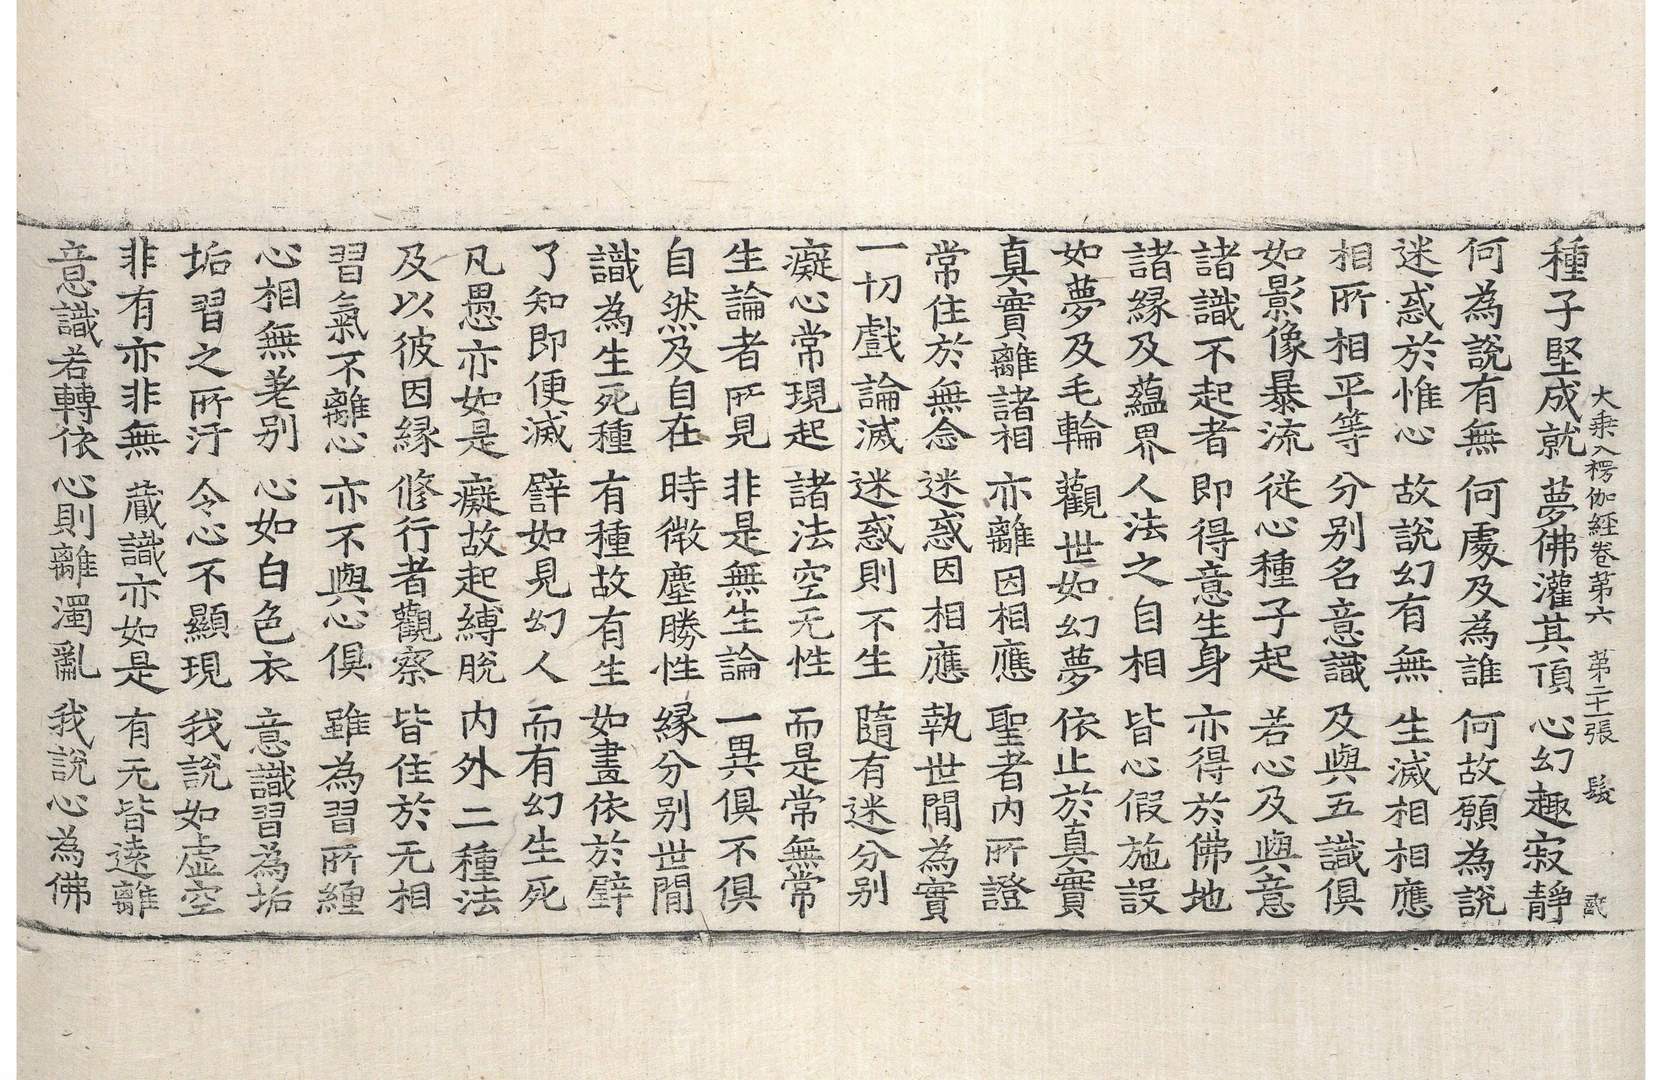 大乗入楞伽経卷第六 第二十一張 髮
種子堅成就 夢佛灌其頂 心幻趣寂靜
何為說有無 何處及為誰 何故願為說
迷惑於惟心 故說幻有無 生滅相相應
相所相平等 分別名意識 及與五識俱
如影像暴流 從心種子起 若心及與意
諸識不起者 即得意生身 亦得於佛地
諸縁及蘊界 人法之自相 皆心假施設
如夢及毛輪 觀世如幻夢 依止於真實
真實離諸相 亦離因相應 聖者內所證
常住於無念 迷惑因相應 執世間為實
一切戲論滅 迷惑則不生 隨有迷分別
癡心常現起 諸法空无性 而是常無常
生論者所見 非是無生論 一異俱不俱
自然及自在 時微塵勝性 縁分別世間
識為生死種 有種故有生 如畫依於壁
了知即便滅 譬如見幻人 而有幻生死
凡愚亦如是 癡故起縛脫 內外二種法
及以彼因縁 修行者觀察 皆住於无相
習氣不離心 亦不與心俱 雖為習所纏
心相無差别 心如白色衣 意識習為垢
垢習之所汙 令心不顯現 我說如虛空
非有亦非無 蔵識亦如是 有无皆遠離
意識若轉依 心則離濁亂 我說心為佛